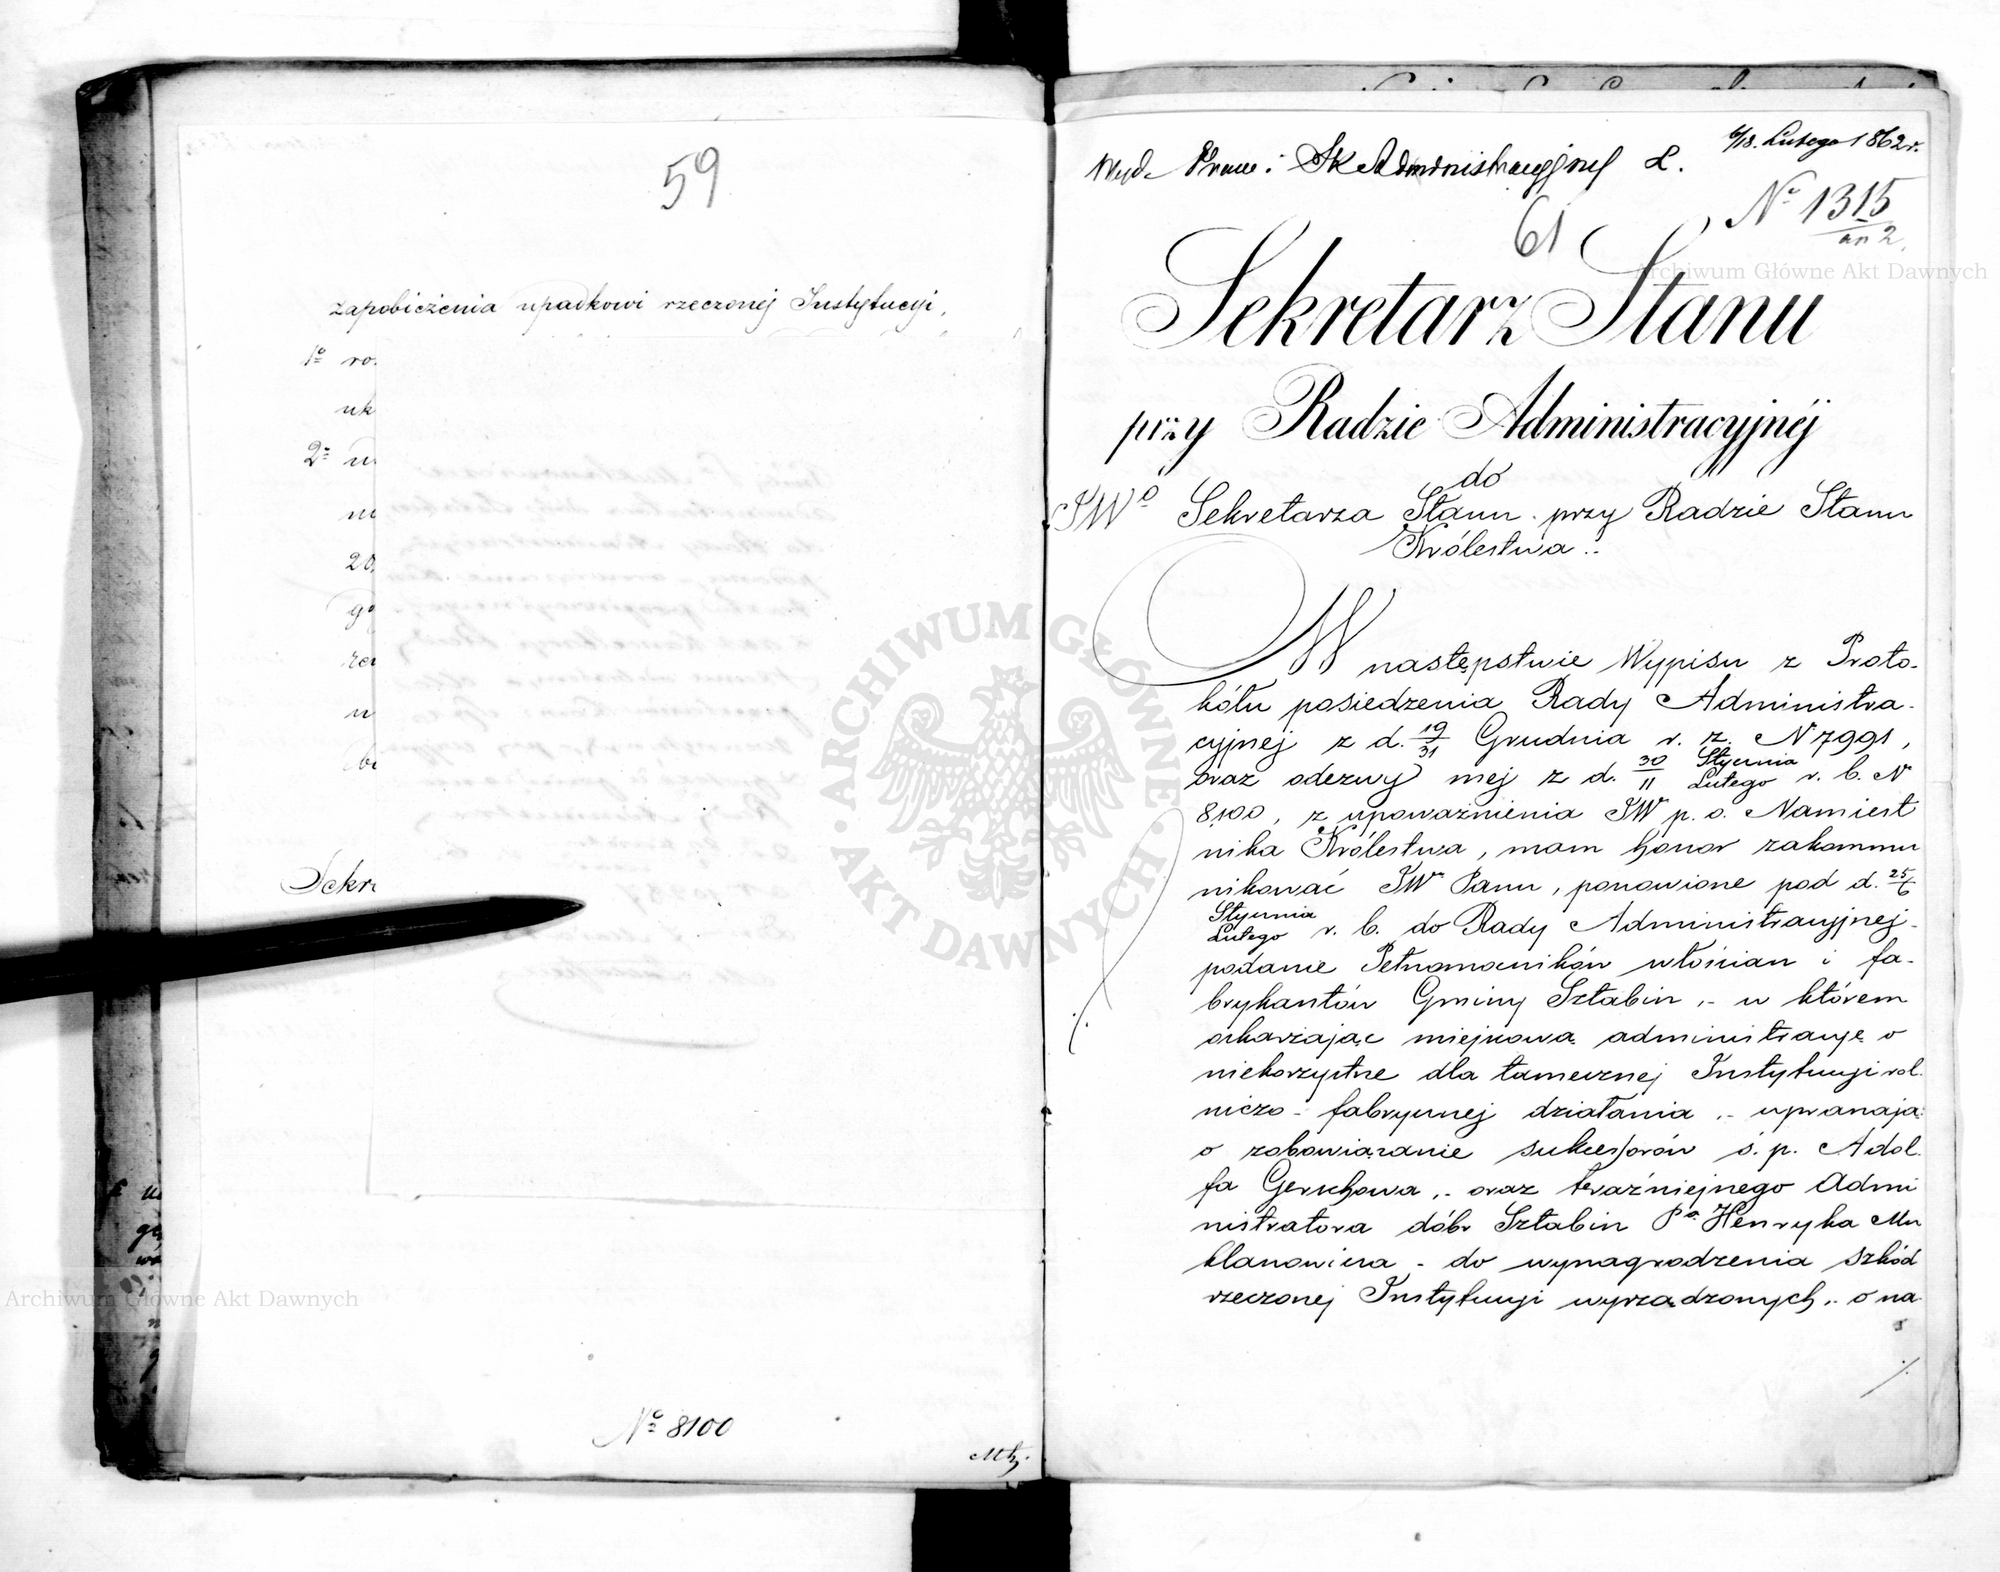 59
zapobieżenia upadkowi rzeczonej Instytucyi,
1o ro
uk
2o u
m
20
go
rze
u
be
Sekr
No 8100
6/18. Lutego 1862 r.
Wyd. Praw i Sk Administracyjnej L.
No 1315
61
Sekretarz Stanu
przy Radzie Administracyjnéj
do
JWo Sekretarza Stanu przy Radzie Stanu
Królestwa
W następstwie Wypisu z Proto-
kółu posiedzenia Rady Administra-
cyjnej z d. 19/31 Grudnia r. z. N 7991,
oraz odezwy mej z d. 30/11 Stycznia/Lutego r. b. N
8100, z upoważnienia JW p. o. Namiest
nika Królestwa, mam honor zakommu
nikować JWu Panu, ponowione pod d. 25/6
Stycznia/Lutego r. b. do Rady Administracyjnej
podanie Pełnomocników włościan i fa-
brykantów Gminy Sztabin, - w którem
oskarżając miejscową administracyę o
niekorzystne dla tamecznej Instytucyi rol
niczo - fabrycznej działania, - upraszają
o zobowiązanie sukcessorów ś. p. Adol
fa Gerschowa, - oraz teraźniejnego Admi
nistratora dóbr Sztabin Pa Henryka Mu
klanowicza - do wynagrodzenia szkód
rzeczonej Instytucyi wyrządzonych, o na
ARCHIWUM GŁÓWNE AKT DAWNYCH
Archiwum Główne Akt Dawnych
Archiwum Główne Akt Dawnych